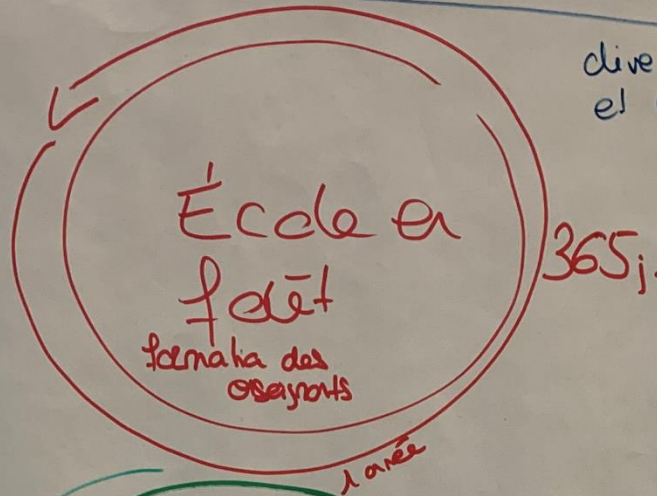 dive
et
École en
forêt
365j.
formation des
enseignants
1 année